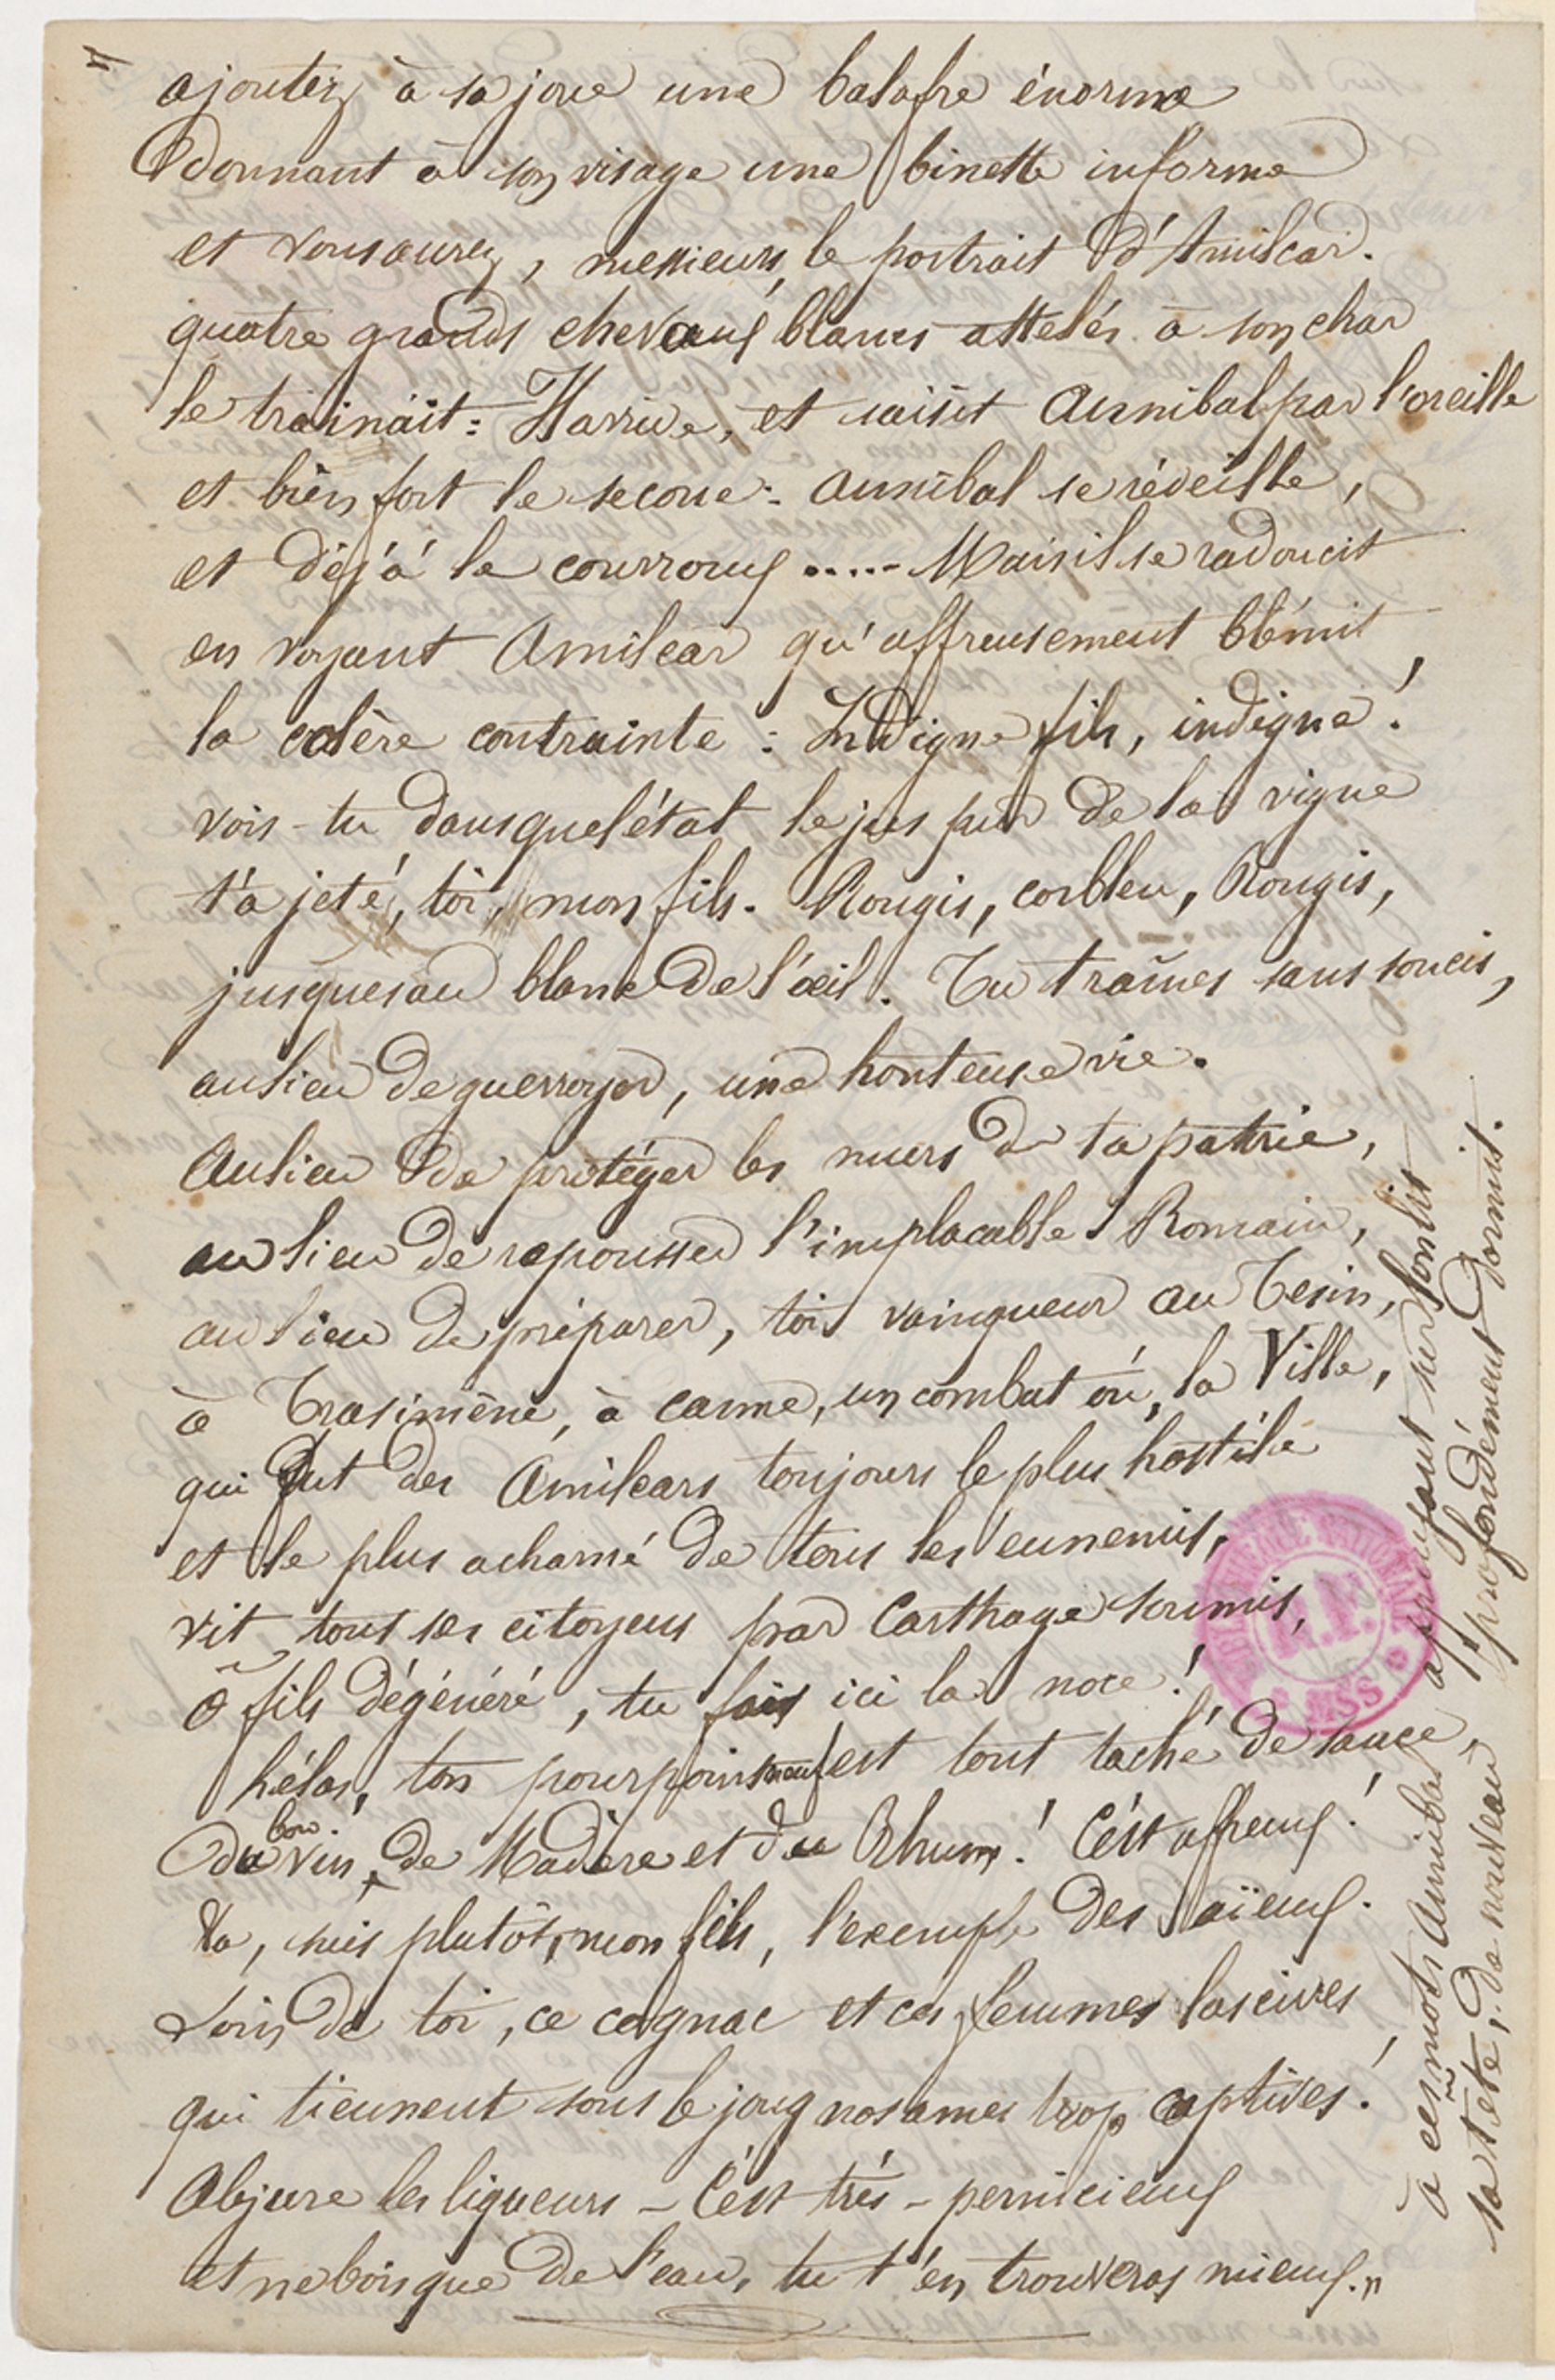 ajoutez à sa joue une balafre énorme
donnant à son visage une binette informe
et vous aurez, messieurs, le portrait d'Amilcar.
quatre grands chevaux blancs attelés à son char
le trainait : Il arrive, et saisit Annibal par l'oreille
et bien fort le secoue : Annibal se réveille,
et déjà le courroux ..... Mais il se radoucit
en voyant Amilcar qu'affreusement blêmit
la colère contrainte : Indigne fils, indigne !
vois-tu dans quel état le jus pur de la vigne
t'a jeté, toi, mon fils. Rougis, corbleu, Rougis,
jusques au blanc de l'œil. Tu traînes sans soucis,
au lieu de guerroyer, une honteuse vie.
Au lieu de protéger les murs de ta patrie,
au lieu de repousser l'implacable Romain,
au lieu de préparer, toi vainqueur au Tesin,
à Trasimène, à Canne, un combat où, la Ville,
qui fut des Amilcars toujours le plus hostile
et le plus acharné de tous les ennemis,
vit tous ses citoyens par Carthage soumis,
ô fils dégénéré, tu fais ici la noce !
hélas, ton pourpoint neuf est tout taché de sauce,
du bon vin de Madère et du Rhum ! C'est affreux !
Va, suis plutôt, mon fils, l'exemple des aïeux.
Loin de toi, ce cognac et ces femmes lascives
qui tiennent sous le joug nos ames trop captives !
Abjure les liqueurs – C'est très-pernicieux
et ne bois que de l'eau, tu t'en trouveras mieux."
à ces mots Annibal appuyant sur son lit
sa tête, de nouveau profondément dormit.
MSS